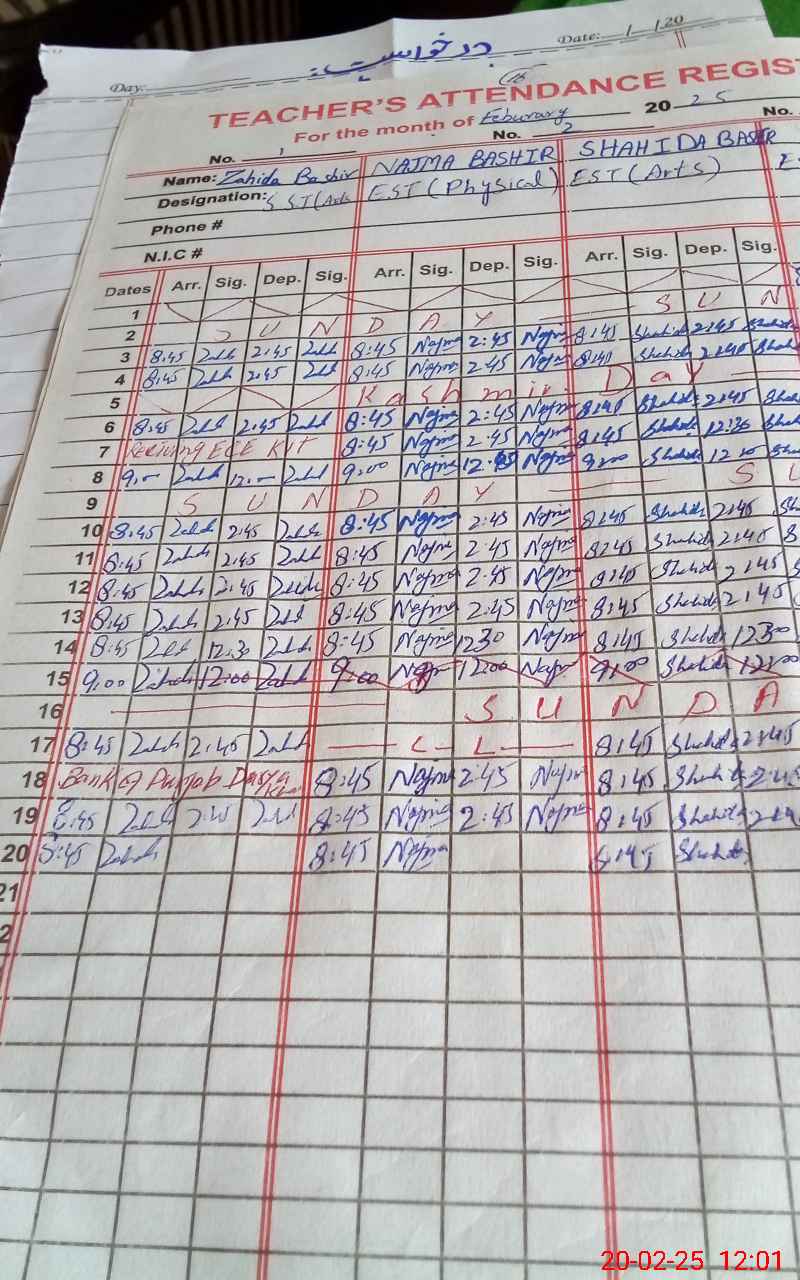 درخواست
Day: Date: / /20
TEACHER'S ATTENDANCE REGIS
For the month of Feburary 2025
No. 1 No. 2 No.
Name: Zahida Bashir NAJMA BASHIR SHAHIDA BASHIR
Designation: SST(Arts EST (Physical) EST (Arts)
Phone #
N.I.C #
Dates Arr. Sig. Dep. Sig. Arr. Sig. Dep. Sig. Arr. Sig. Dep. Sig.
1
2 S U N D A Y S U N
3 8:45 Zahid 2:45 Zahid 8:45 Najma 2:45 Najma 8:45 Shahida 2:45 Shahida
4 8:45 Zahid 2:45 Zahid 8:45 Najma 2:45 Najma 8:40 Shahida 2:40 Shahida
5 Kashmir Day
6 8:45 Zahid 2:45 Zahid 8:45 Najma 2:45 Najma 8:40 Shahida 2:45 Shahida
7 ECE KIT 8:45 Najma 2:45 Najma 8:45 Shahida 12:30 Shahida
8 9:00 Zahid 12:00 Zahid 9:00 Najma Najma 9:00 Shahida Shahida
9 S U N D A Y S U
10 8:45 Zahid 2:45 Zahid 8:45 Najma 2:45 Najma 8:45 Shahida 2:45 Shahida
11 8:45 Zahid 2:45 Zahid 8:45 Najma 2:45 Najma 8:45 Shahida 2:45
12 8:45 Zahid 2:45 Zahid 8:45 Najma 2:45 Najma 8:45 Shahida 2:45
13 8:45 Zahid 2:45 Zahid 8:45 Najma 2:45 Najma 8:45 Shahida 2:45
14 8:45 Zahid 12:30 Zahid 8:45 Najma 1230 Najma 8:45 Shahida 1230
15 9:00 Zahid 12:00 Zahid 9:00 Najma 12:00 Najma 9:00 Shahida 12:00
16 S U N D A
17 8:45 Zahid 2:45 Zahid L L 8:45 Shahida 2:45
18 Bank of Punjab Dasya 8:45 Najma 2:45 Najma 8:45 Shahida 2:45
19 8:45 Zahid 2:45 Zahid 8:45 Najma 2:45 Najma 8:45 Shahida
20 8:45 Zahid 8:45 Najma 8:45 Shahida
21
2
20-02-25 12:01